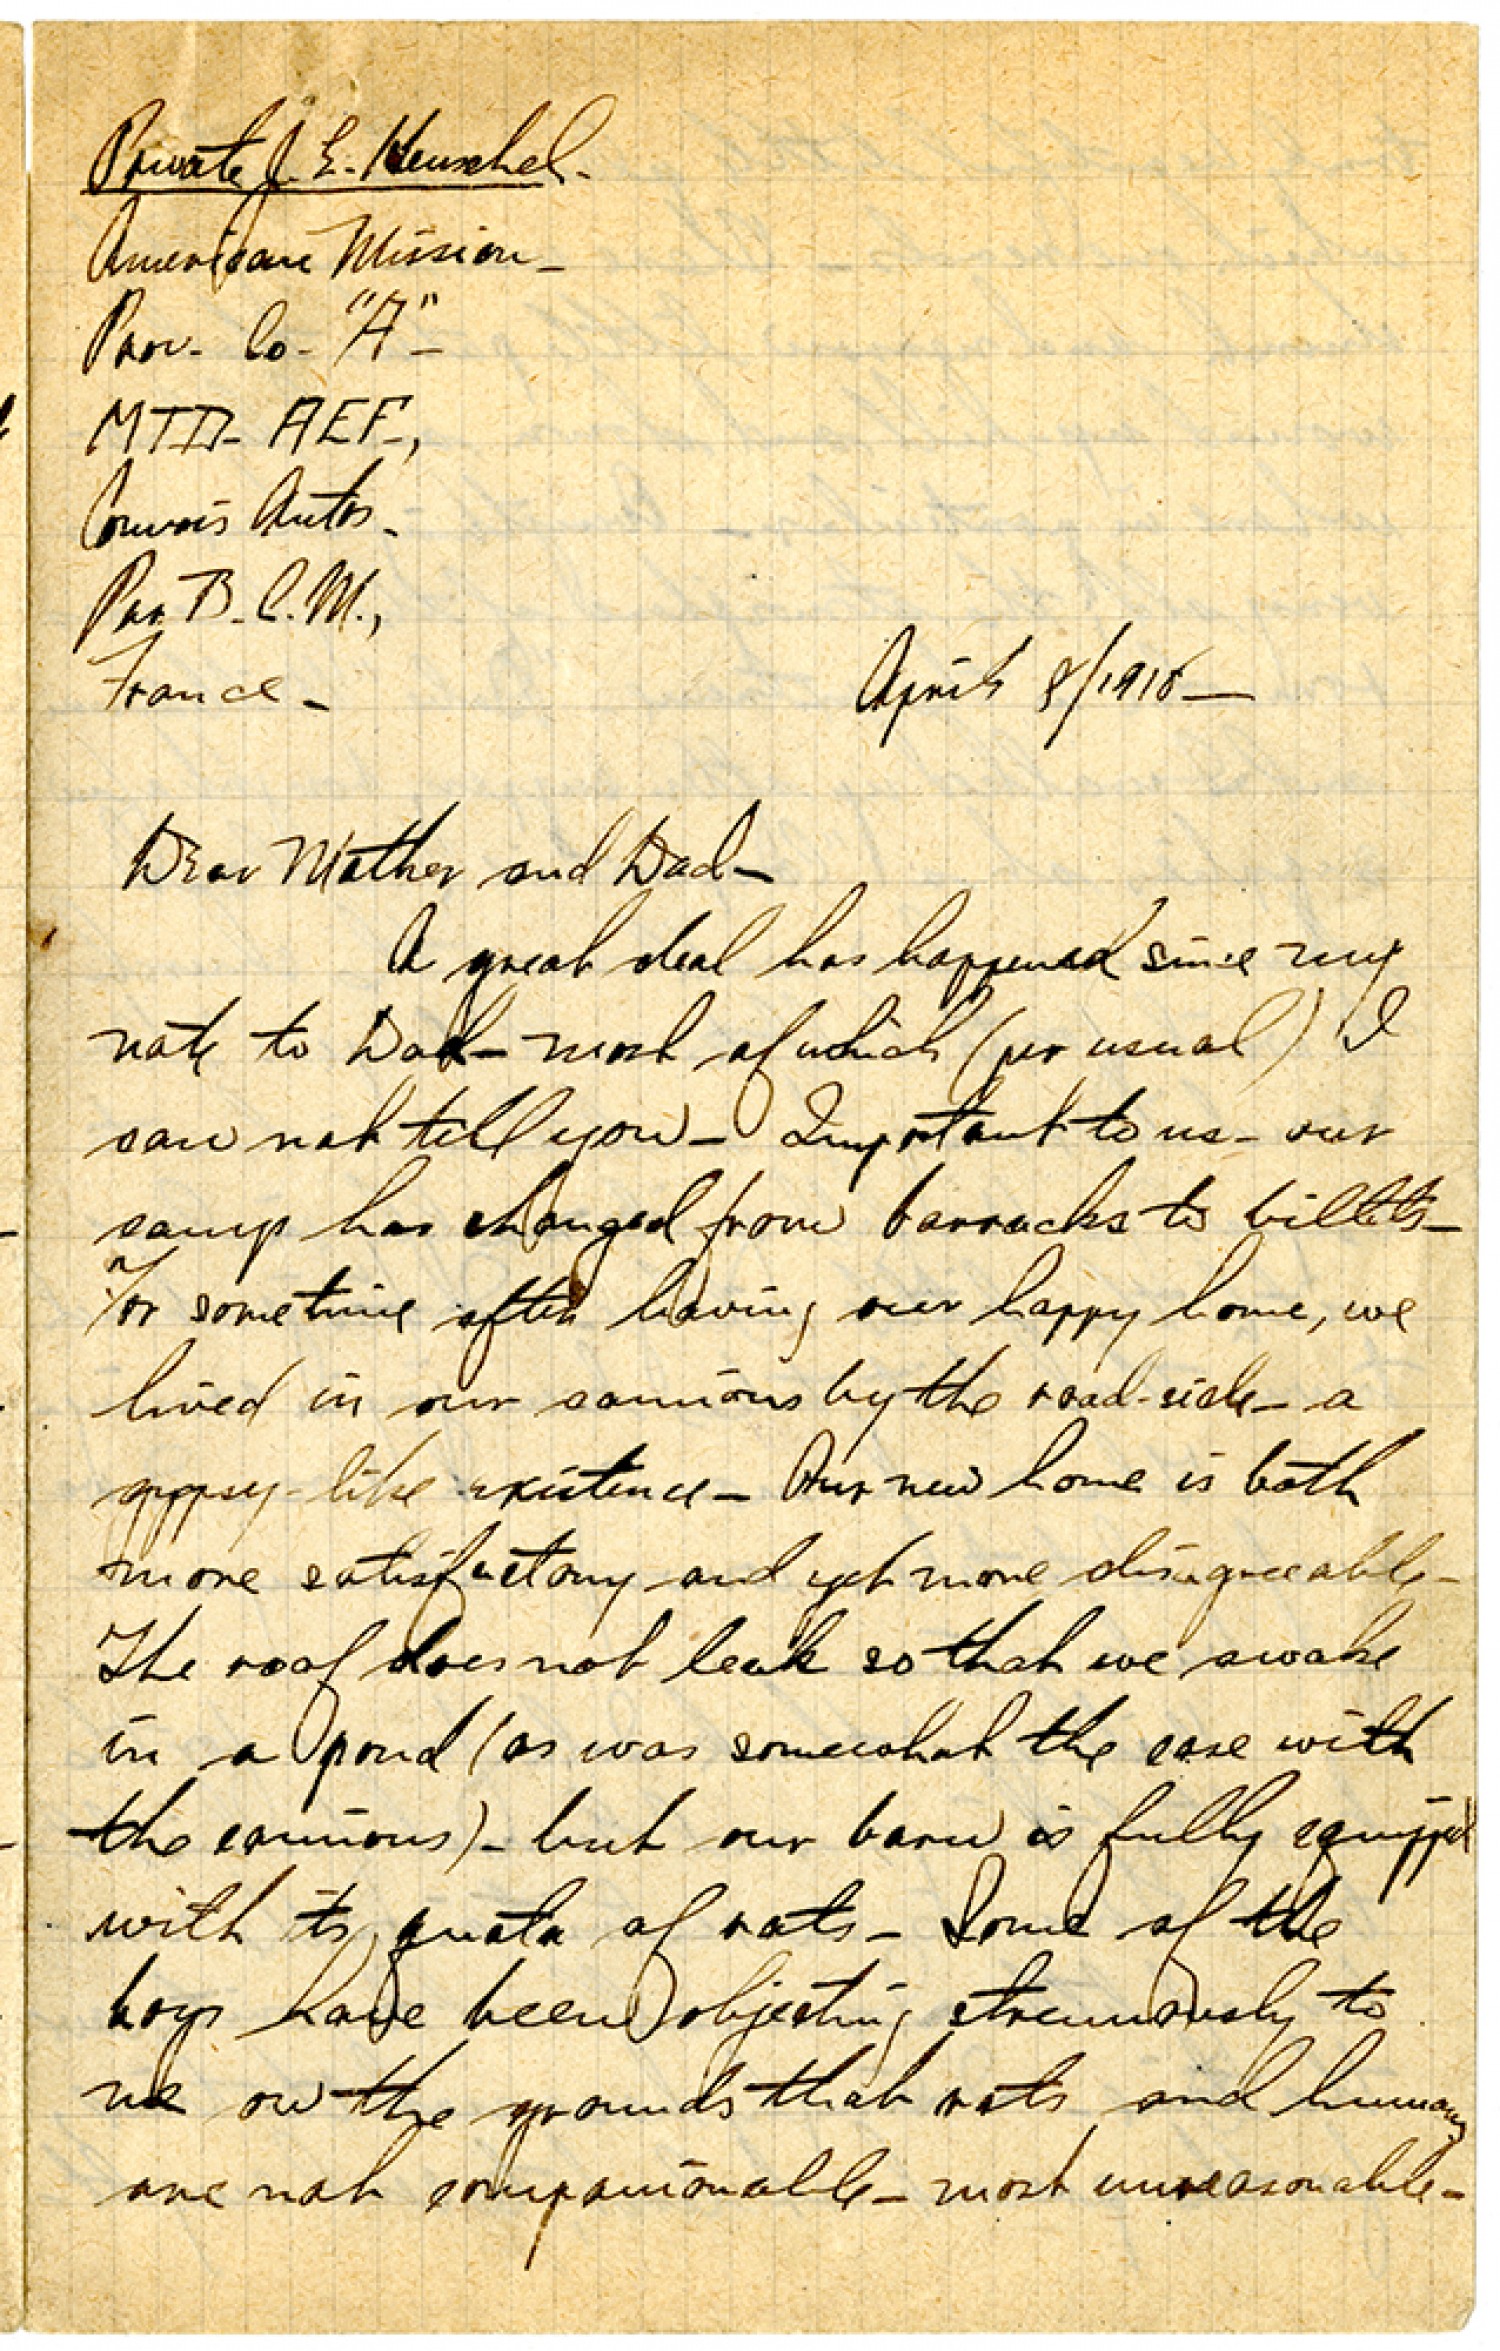 Private J. E. Henschel-
American Mission-
Prov- Co- "A"-
MTD- AEF-,
Convois Autos-
Par B.C.M.,
France-
April 8/1918-
Dear Mother and Dad-
A great deal has happened since my
note to Dad- most of which (per usual) I
can not tell you- Important to us- our
camp has changed from barracks to billets-
For sometime after leaving our happy home, we
lived in our camions by the road-side- a
gypsy-like existence- Our new home is both
more satisfactory and yet more disagreeable-
The roof does not leak so that we awake
in a pond (as was somewhat the case with
the camions)- but our barn is fully equipped
with its quota of rats- Some of the
boys have been objecting strenuously to
me on the grounds that rats and humans
are not companionable- most unreasonable-